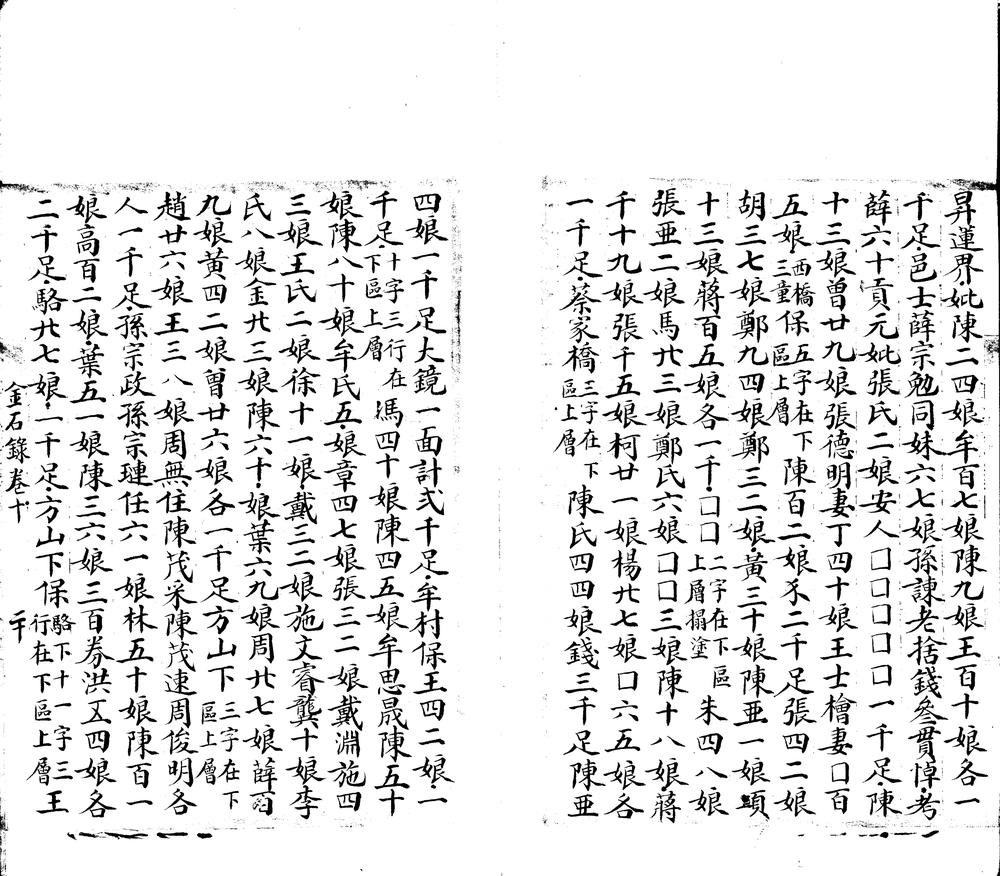 昇運界妣陳二四娘牟百七娘陳九娘王百十娘各一
千足邑士薛宗勉同妹六七娘孫諫老捨錢叄貫悼考
薛六十貢元妣張氏二娘安人口口口口口一千足陳
十三娘曾廿九娘張德明妻丁四十娘王士檜妻口百
五娘西橋三童保五字在下區上層陳百二娘各二千足張四二娘
胡三七娘鄭九四娘鄭三二娘黃三十娘陳亜一娘項
十三娘蔣百五娘各一千口口二字在下區上層搨塗朱四八娘
張亜二娘馬廿三娘鄭氏六娘口口三娘陳十八娘蔣
千十九娘張千五娘柯廿一娘楊廿七娘口六五娘各
一千足蔡家橋三字在下區上層陳氏四四娘錢三千足陳亜
四娘一千足大鏡一面計弍千足牟村保王四二娘一
千足十字三行在下區上層馮四十娘陳四五娘牟思晟陳五十
娘陳八十娘牟氏五娘章四七娘張三二娘戴淵施四
三娘王氏二娘徐十一娘戴三二娘施文睿龔十娘李
氏八娘金廿三娘陳六十娘葉六九娘周廿七娘薛百
九娘黃四二娘曾廿六娘各一千足方山下三字在下區上層
趙廿六娘王三八娘周無住陳茂采陳茂速周俊明各
人一千足孫宗政孫宗璉任六一娘林五十娘陳百一
娘高百二娘葉五一娘陳三六娘三百券洪五四娘各
二千足駱廿七娘一千足方山下保駱下十一字三行在下區上層王
金石錄卷十